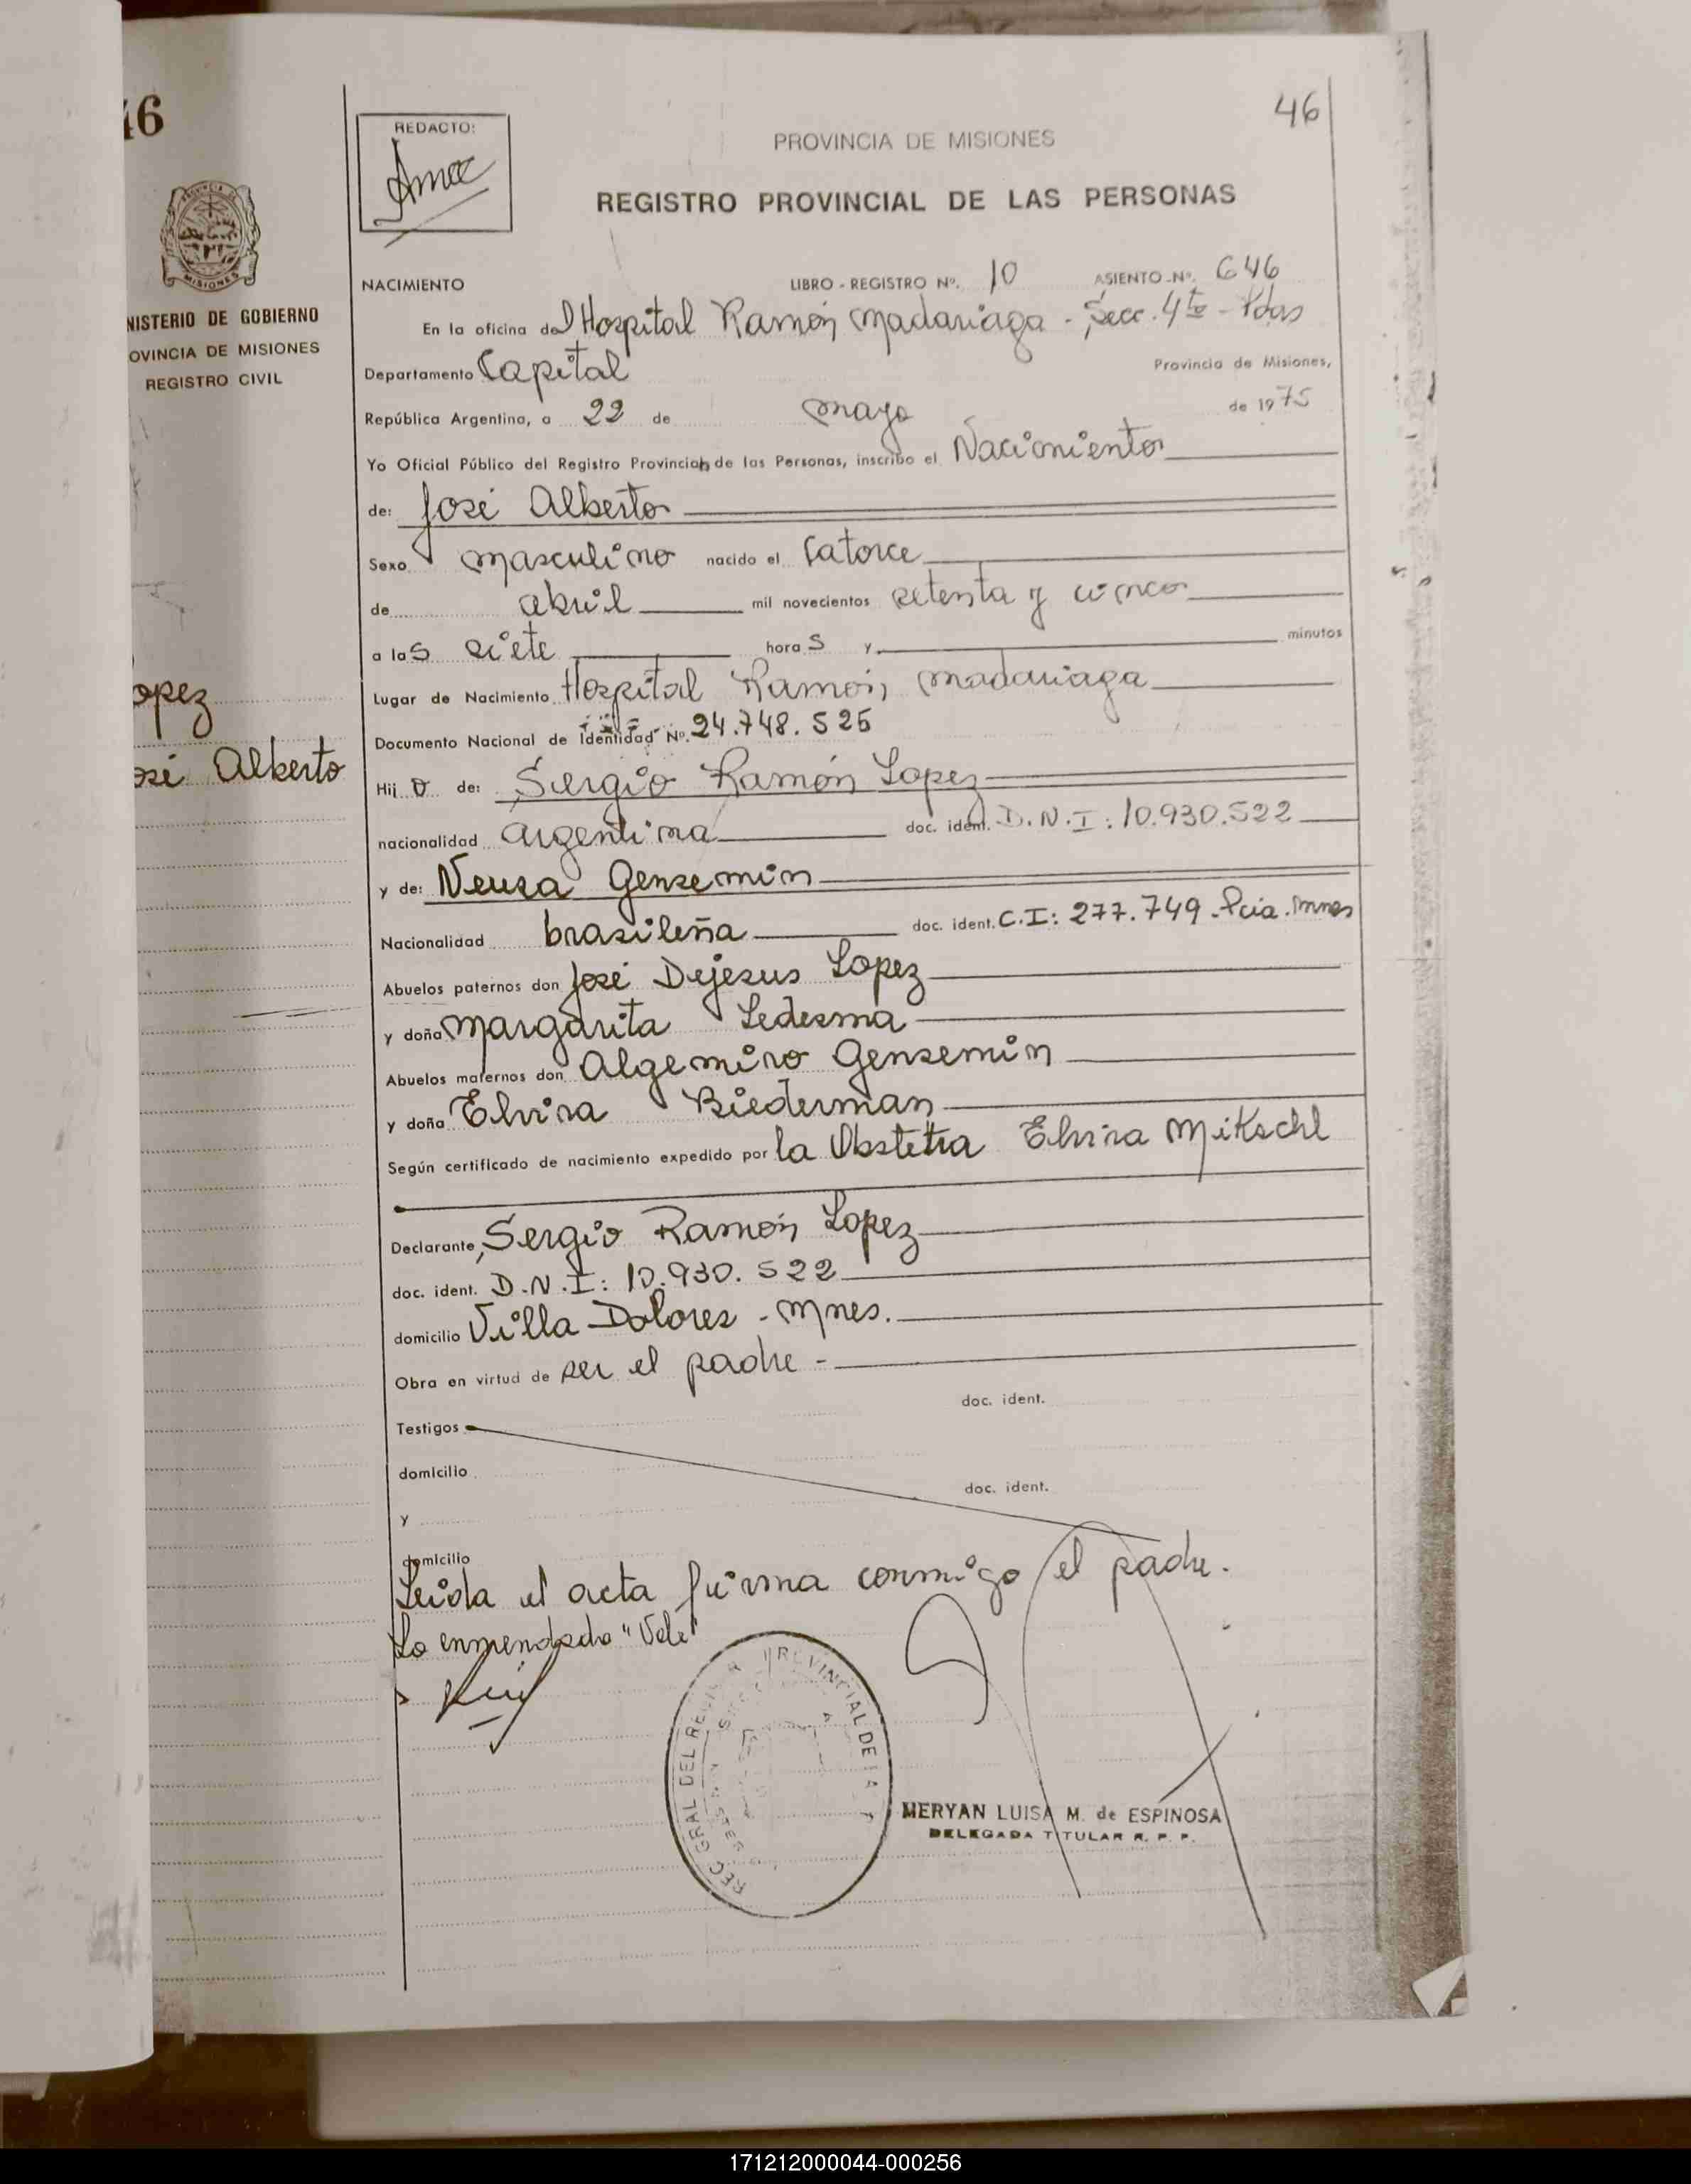 46
NISTERIO DE GOBIERNO
OVINCIA DE MISIONES
REGISTRO CIVIL
opez
osé Alberto
46
REDACTO:
PROVINCIA DE MISIONES
REGISTRO PROVINCIAL DE LAS PERSONAS
NACIMIENTO LIBRO - REGISTRO Nº. 10 ASIENTO Nº. 646
En la oficina del Hospital Ramón Madariaga - Secc. 4ta - Pdas
Departamento Capital Provincia de Misiones,
República Argentina, a 22 de mayo de 1975
Yo Oficial Público del Registro Provincial de las Personas, inscribo el Nacimiento
de: José Alberto
Sexo masculino nacido el Catorce
de abril mil novecientos setenta y cinco
a las siete horas y minutos
Lugar de Nacimiento Hospital Ramón Madariaga
Documento Nacional de Identidad Nº. 24.748.525
Hijo de: Sergio Ramón Lopez
nacionalidad argentina doc. ident. D.N.I: 10.930.522
y de: Neusa Gensemin
Nacionalidad brasileña doc. ident. C.I: 277.749 - Pcia. Mnes
Abuelos paternos don José Dejesus Lopez
y doña Margarita Ledesma
Abuelos maternos don Algemiro Gensemin
y doña Elvira Biederman
Según certificado de nacimiento expedido por la Obstetra Elvira Mikschl
Declarante, Sergio Ramón Lopez
doc. ident. D.N.I: 10.930.522
domicilio Villa Dolores - Mnes.
Obra en virtud de ser el padre -
doc. ident.
Testigos
domicilio
doc. ident.
y
domicilio
Leida el acta firma conmigo el padre.
Lo enmendado "Vale"
MERYAN LUISA M. de ESPINOSA
DELEGADA TITULAR R. P. P.
171212000044-000256